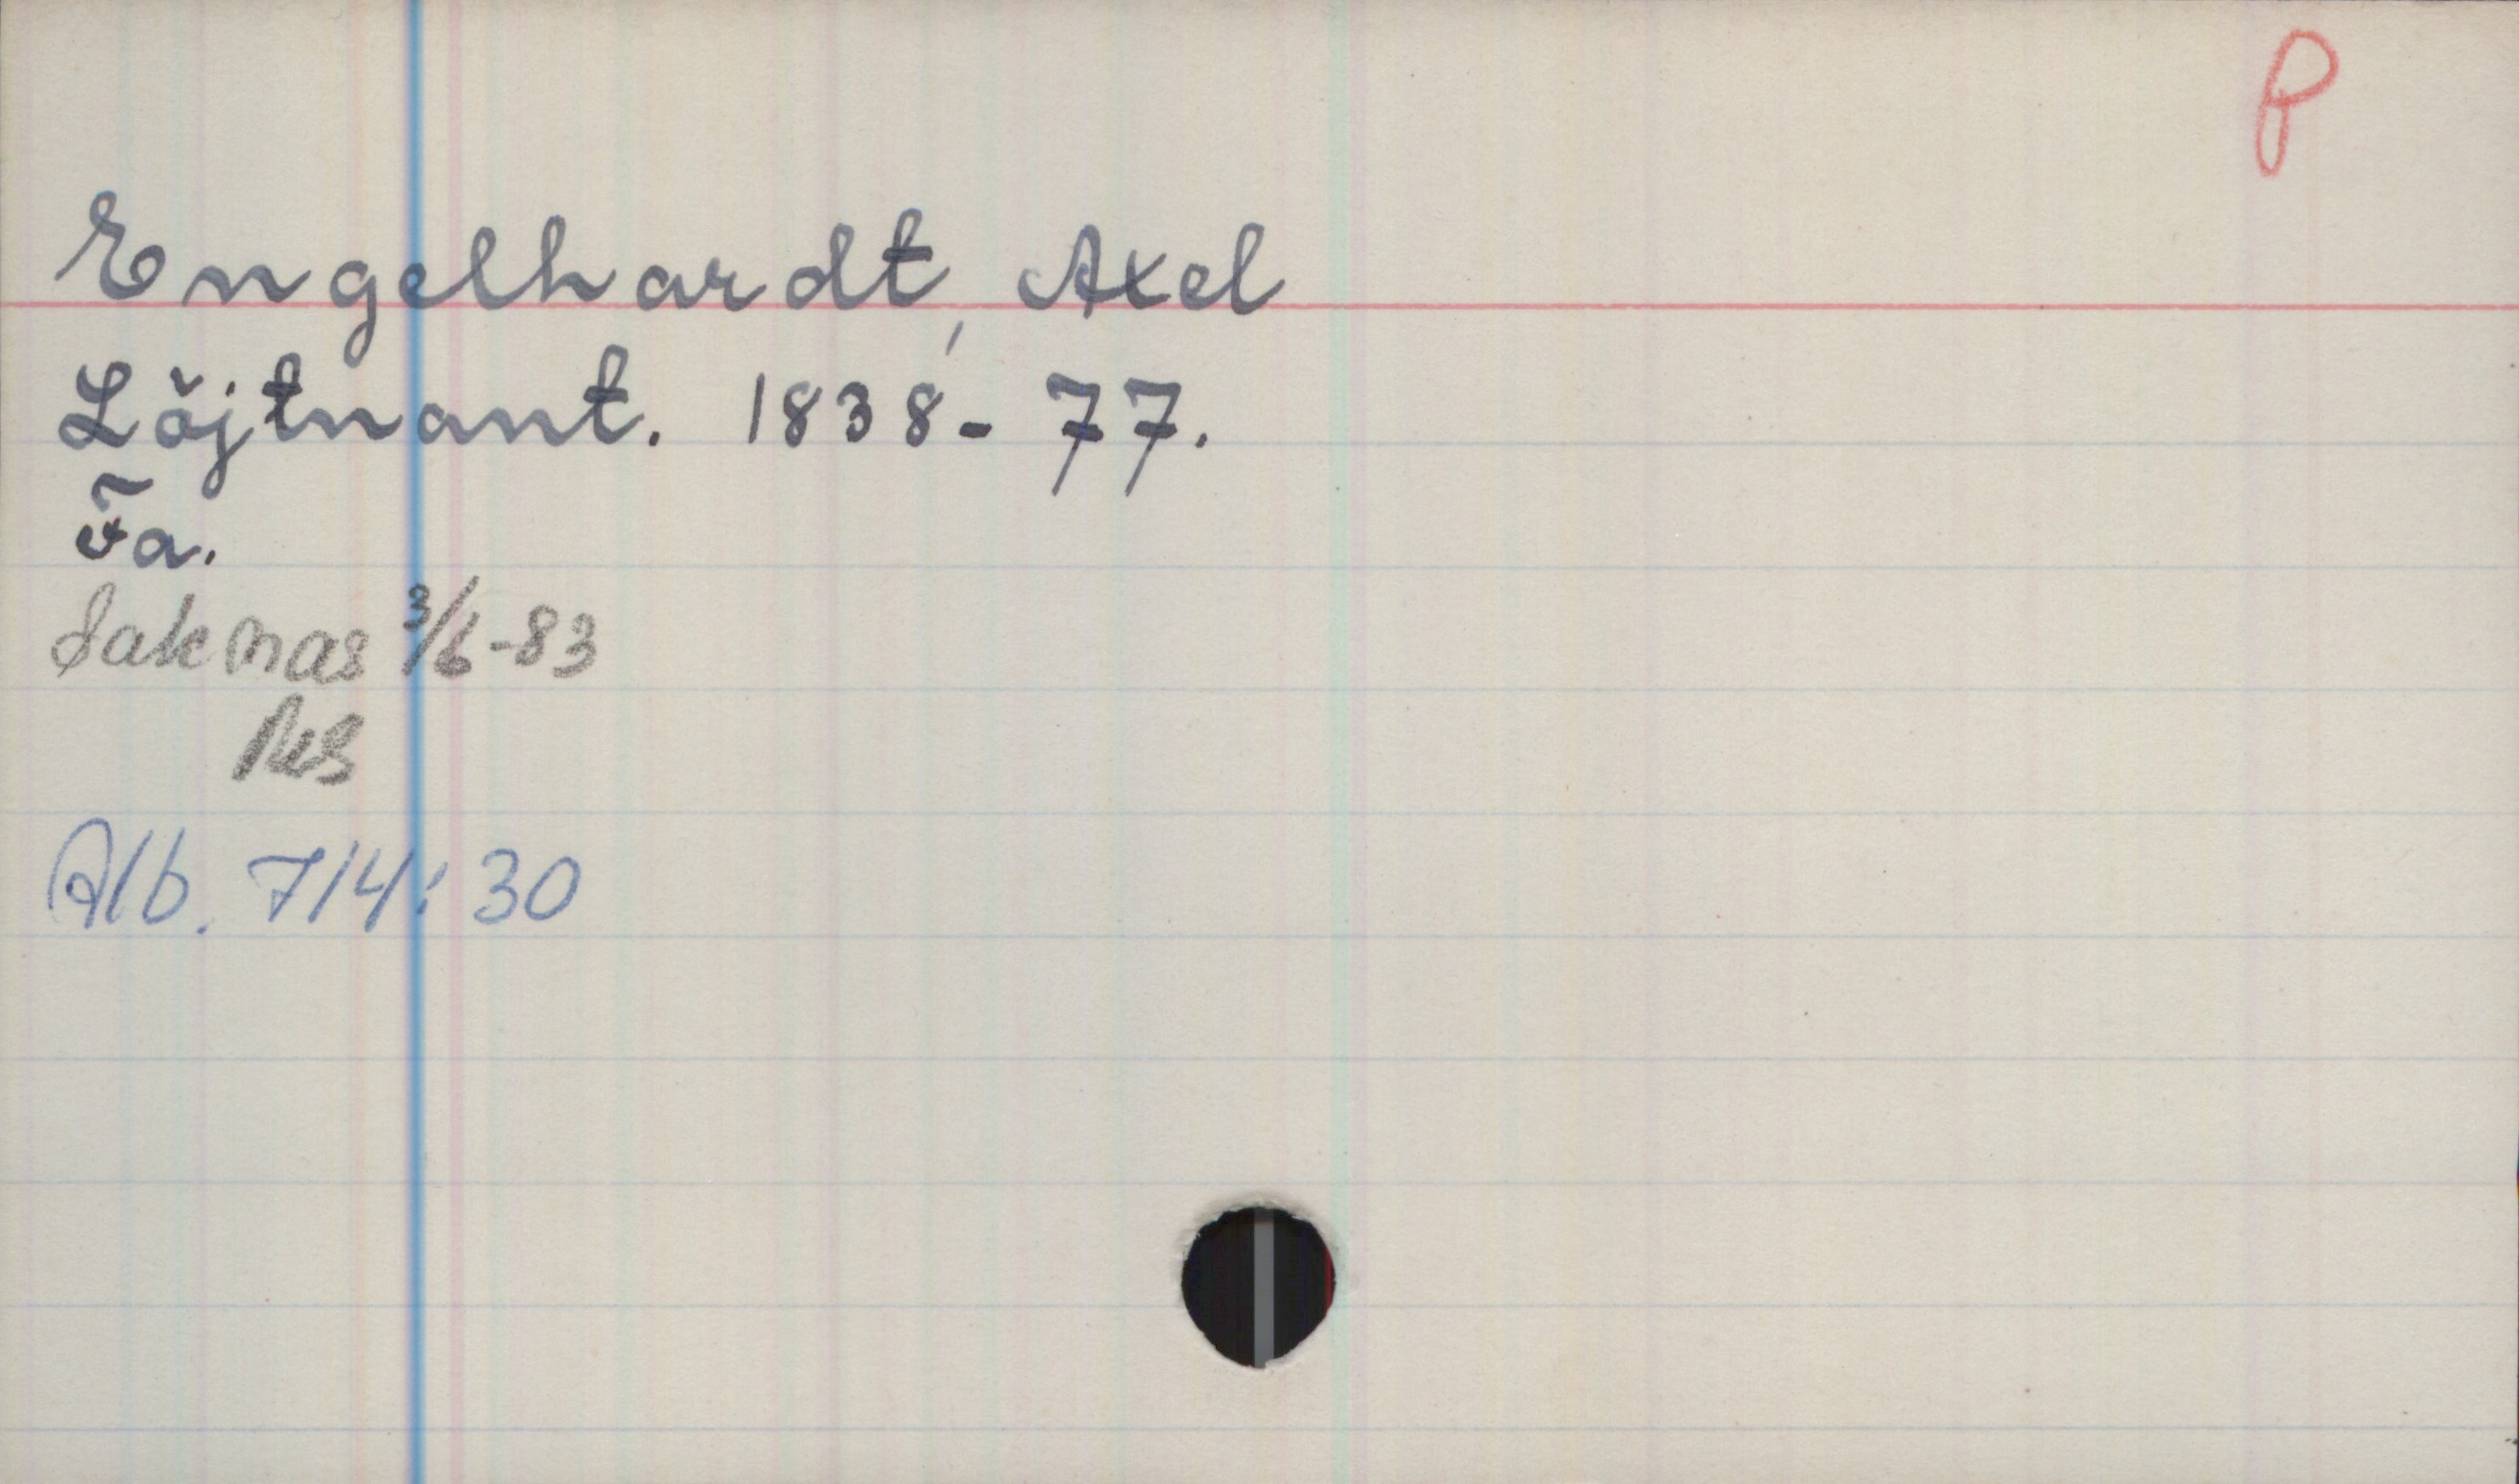 P
Engelhardt, Axel
Löjtnant. 1838-77.
Fa.
Saknas 3/6-83
Alb. 714:30